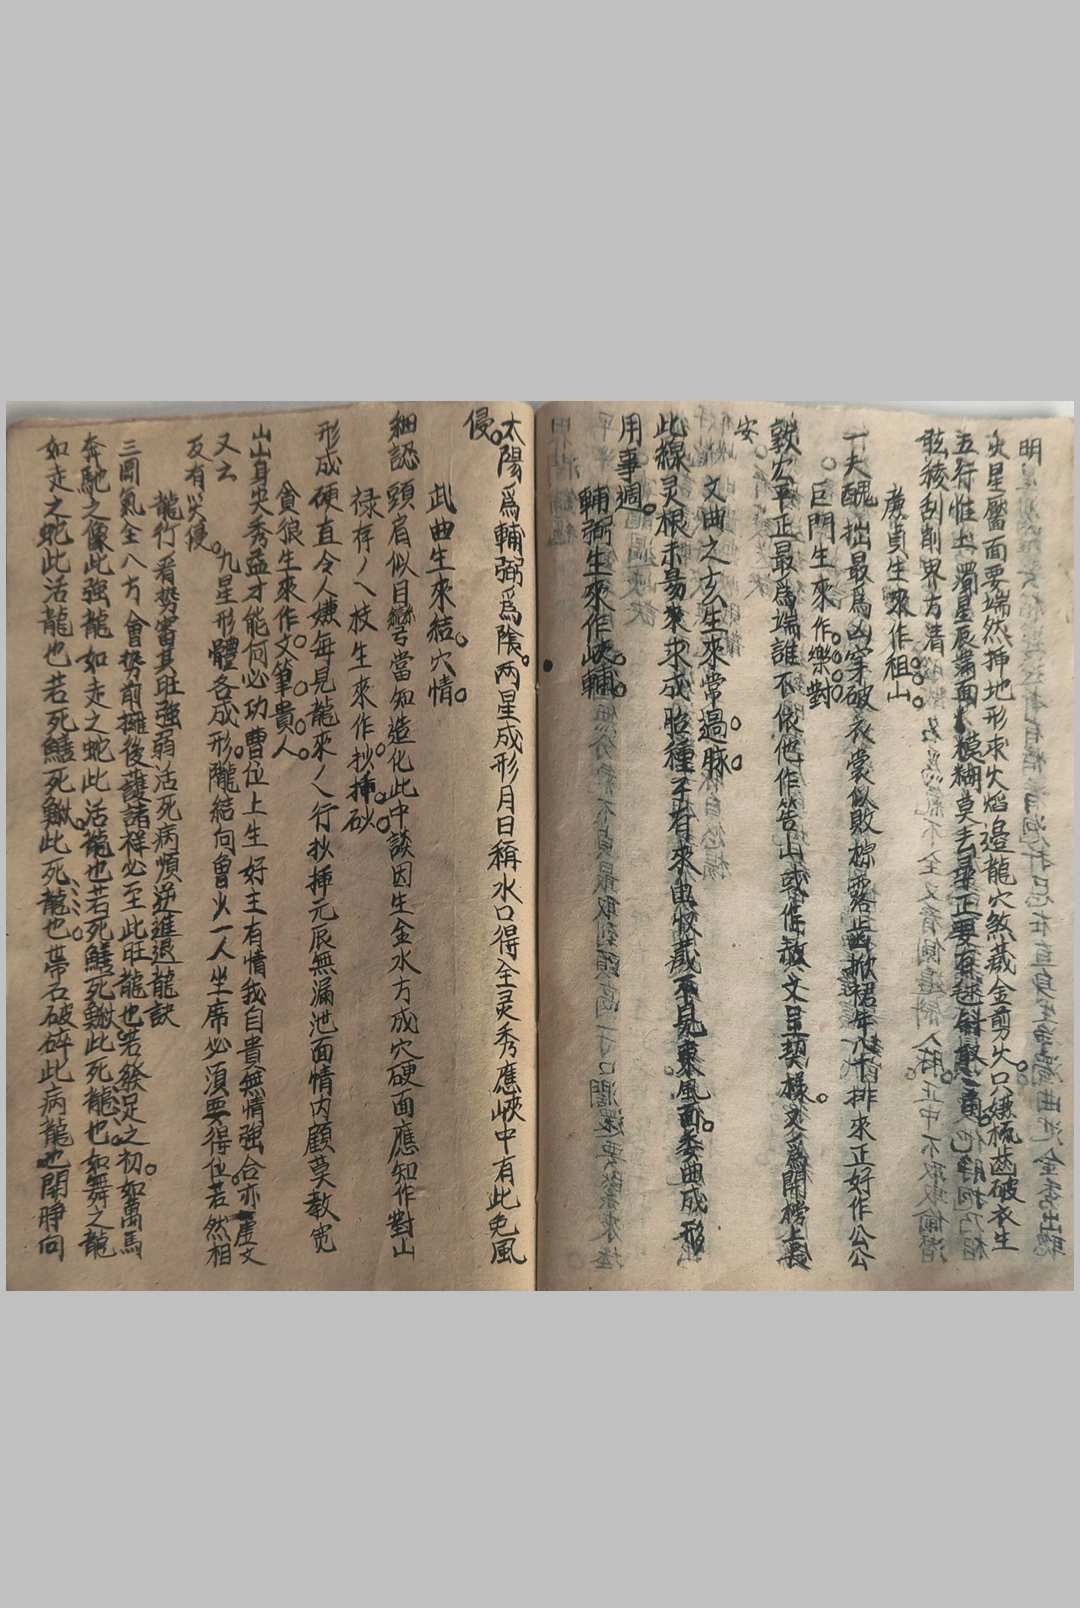 明
火星靨面要端然揷地形求火焰邉龍穴煞藏金剪火只嫌梳齒破衣生
五行惟土濁星辰滿面模糊莫去尋正要
眩綾刮削界方清
廉貞生來作祖山
一夫醜拙最爲凶穿破衣裳似敗棕露齒掀裙年八十排來正好作公公
巨門生來作樂對
敦宏平正最爲端誰不依他作笞山或作被文呈契様文爲開榜上長
安
文曲之玄生來常過脉
此線灵根未易來求成胎種子有來由收藏不見東風面委曲成形
用事週
輔弼生來作峽輔
太陽爲輔弼爲陰两星成形月日稱水口得全灵秀應峽中有此免風
侵
武曲生來結穴情
細認頭肩似目彎當知造化此中談因生金水方成穴硬面應知作對山
禄存丿乀枝生來作抄揷砂
形成硬直令人嫌每見龍來乀行抄揷元辰無漏泄面情内顧莫教寛
貪狼生來作文筆貴人
山身尖秀孟才能何必功曹位上生好主有情我自貴無情強合亦虚文
又云九星形體各成形隴結向曾火一人坐席必須要得位若然相
反有災侵
龍行看勢審其旺強弱活死病順逆進退龍訣
三園氣全八方會势前擁後護諸祥必至此旺龍也若發足之初如萬馬
奔馳之像此強龍如走之蛇此活龍也若死鱔死鰍此死龍也如舞之龍
如走之蛇此活龍也若死鱔死鰍此死龍也帯石破碎此病龍也開睁向